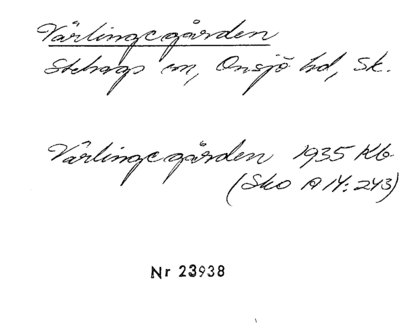 Värlingegården
Stehags sn, Onsjö hd, Sk.
Värlingegården 1935 Kb
(Sko A 14:243)
Nr 23938